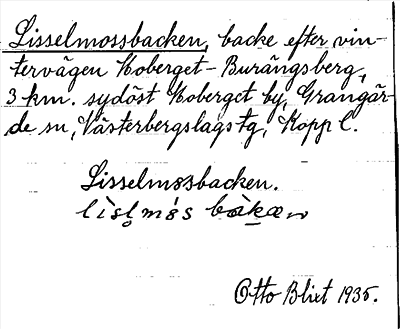 Lisselmossbacken, backe efter vin-
tervägen Hoberget-Burängsberg,
3 km. sydöst Hoberget by, Grangär-
de sn, Västerbergslags tg, Kopp l.
Lisselmøsbacken.
lìsl̥møś bàkæn
Otto Blixt 1935.